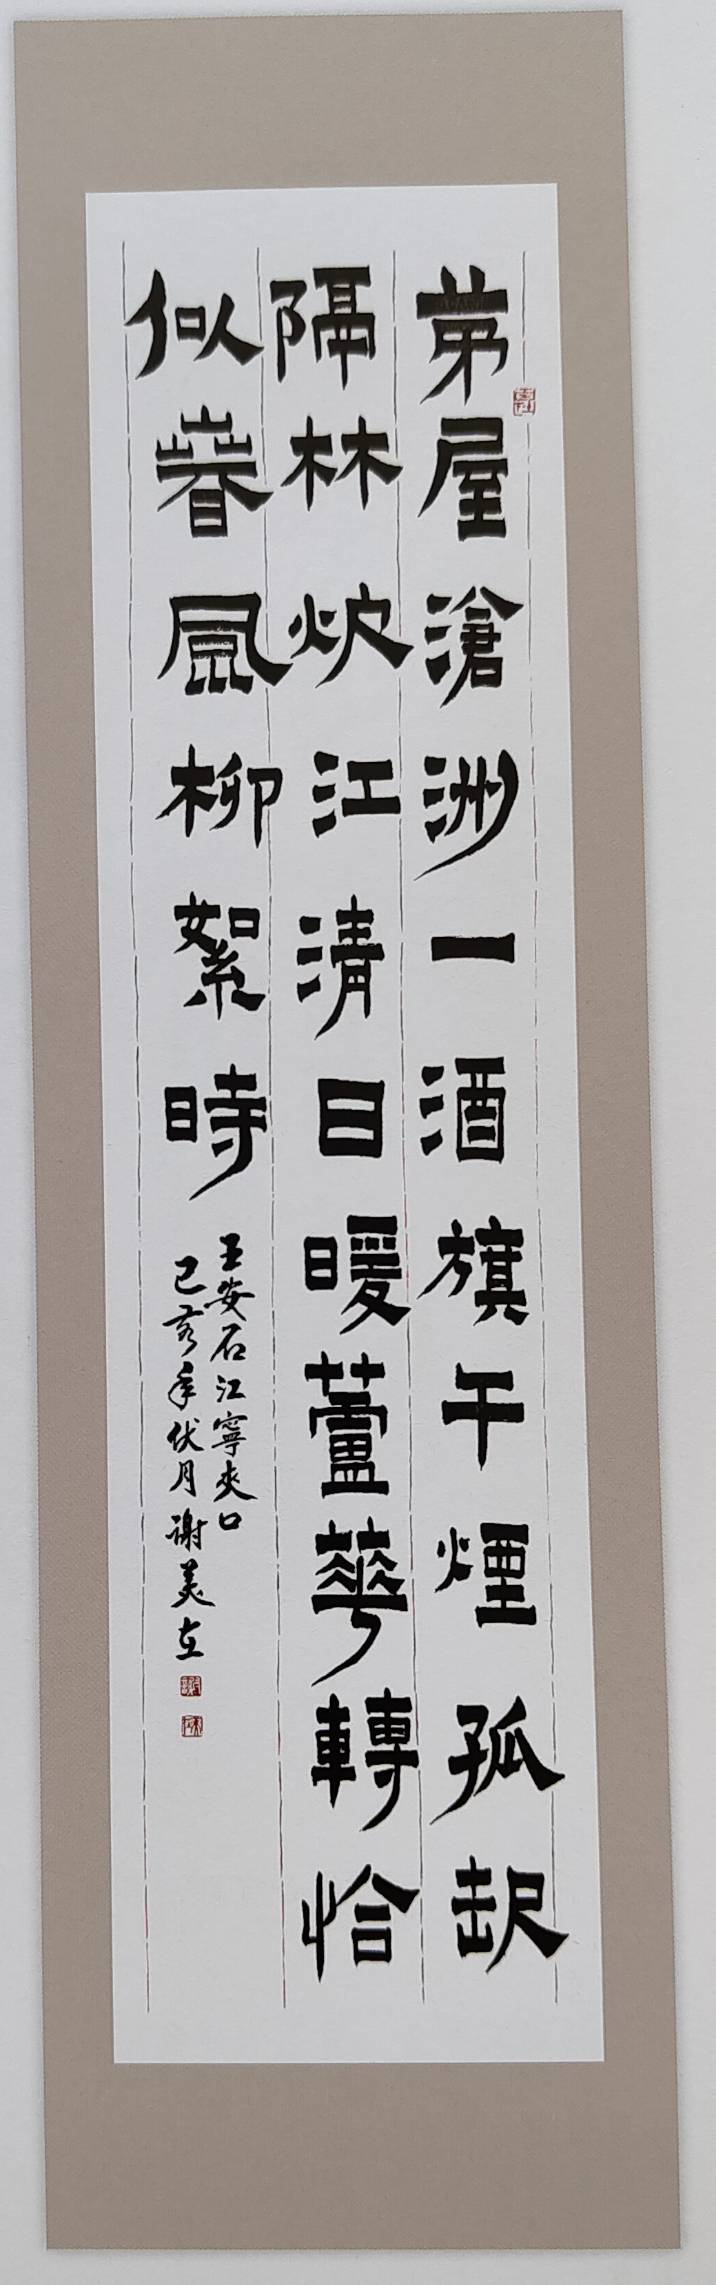 茅屋滄洲一酒旗午煙孤起
隔林炊江清日暖蘆華轉恰
似春風柳絮時
王安石江寧夾口
己亥年伏月謝美